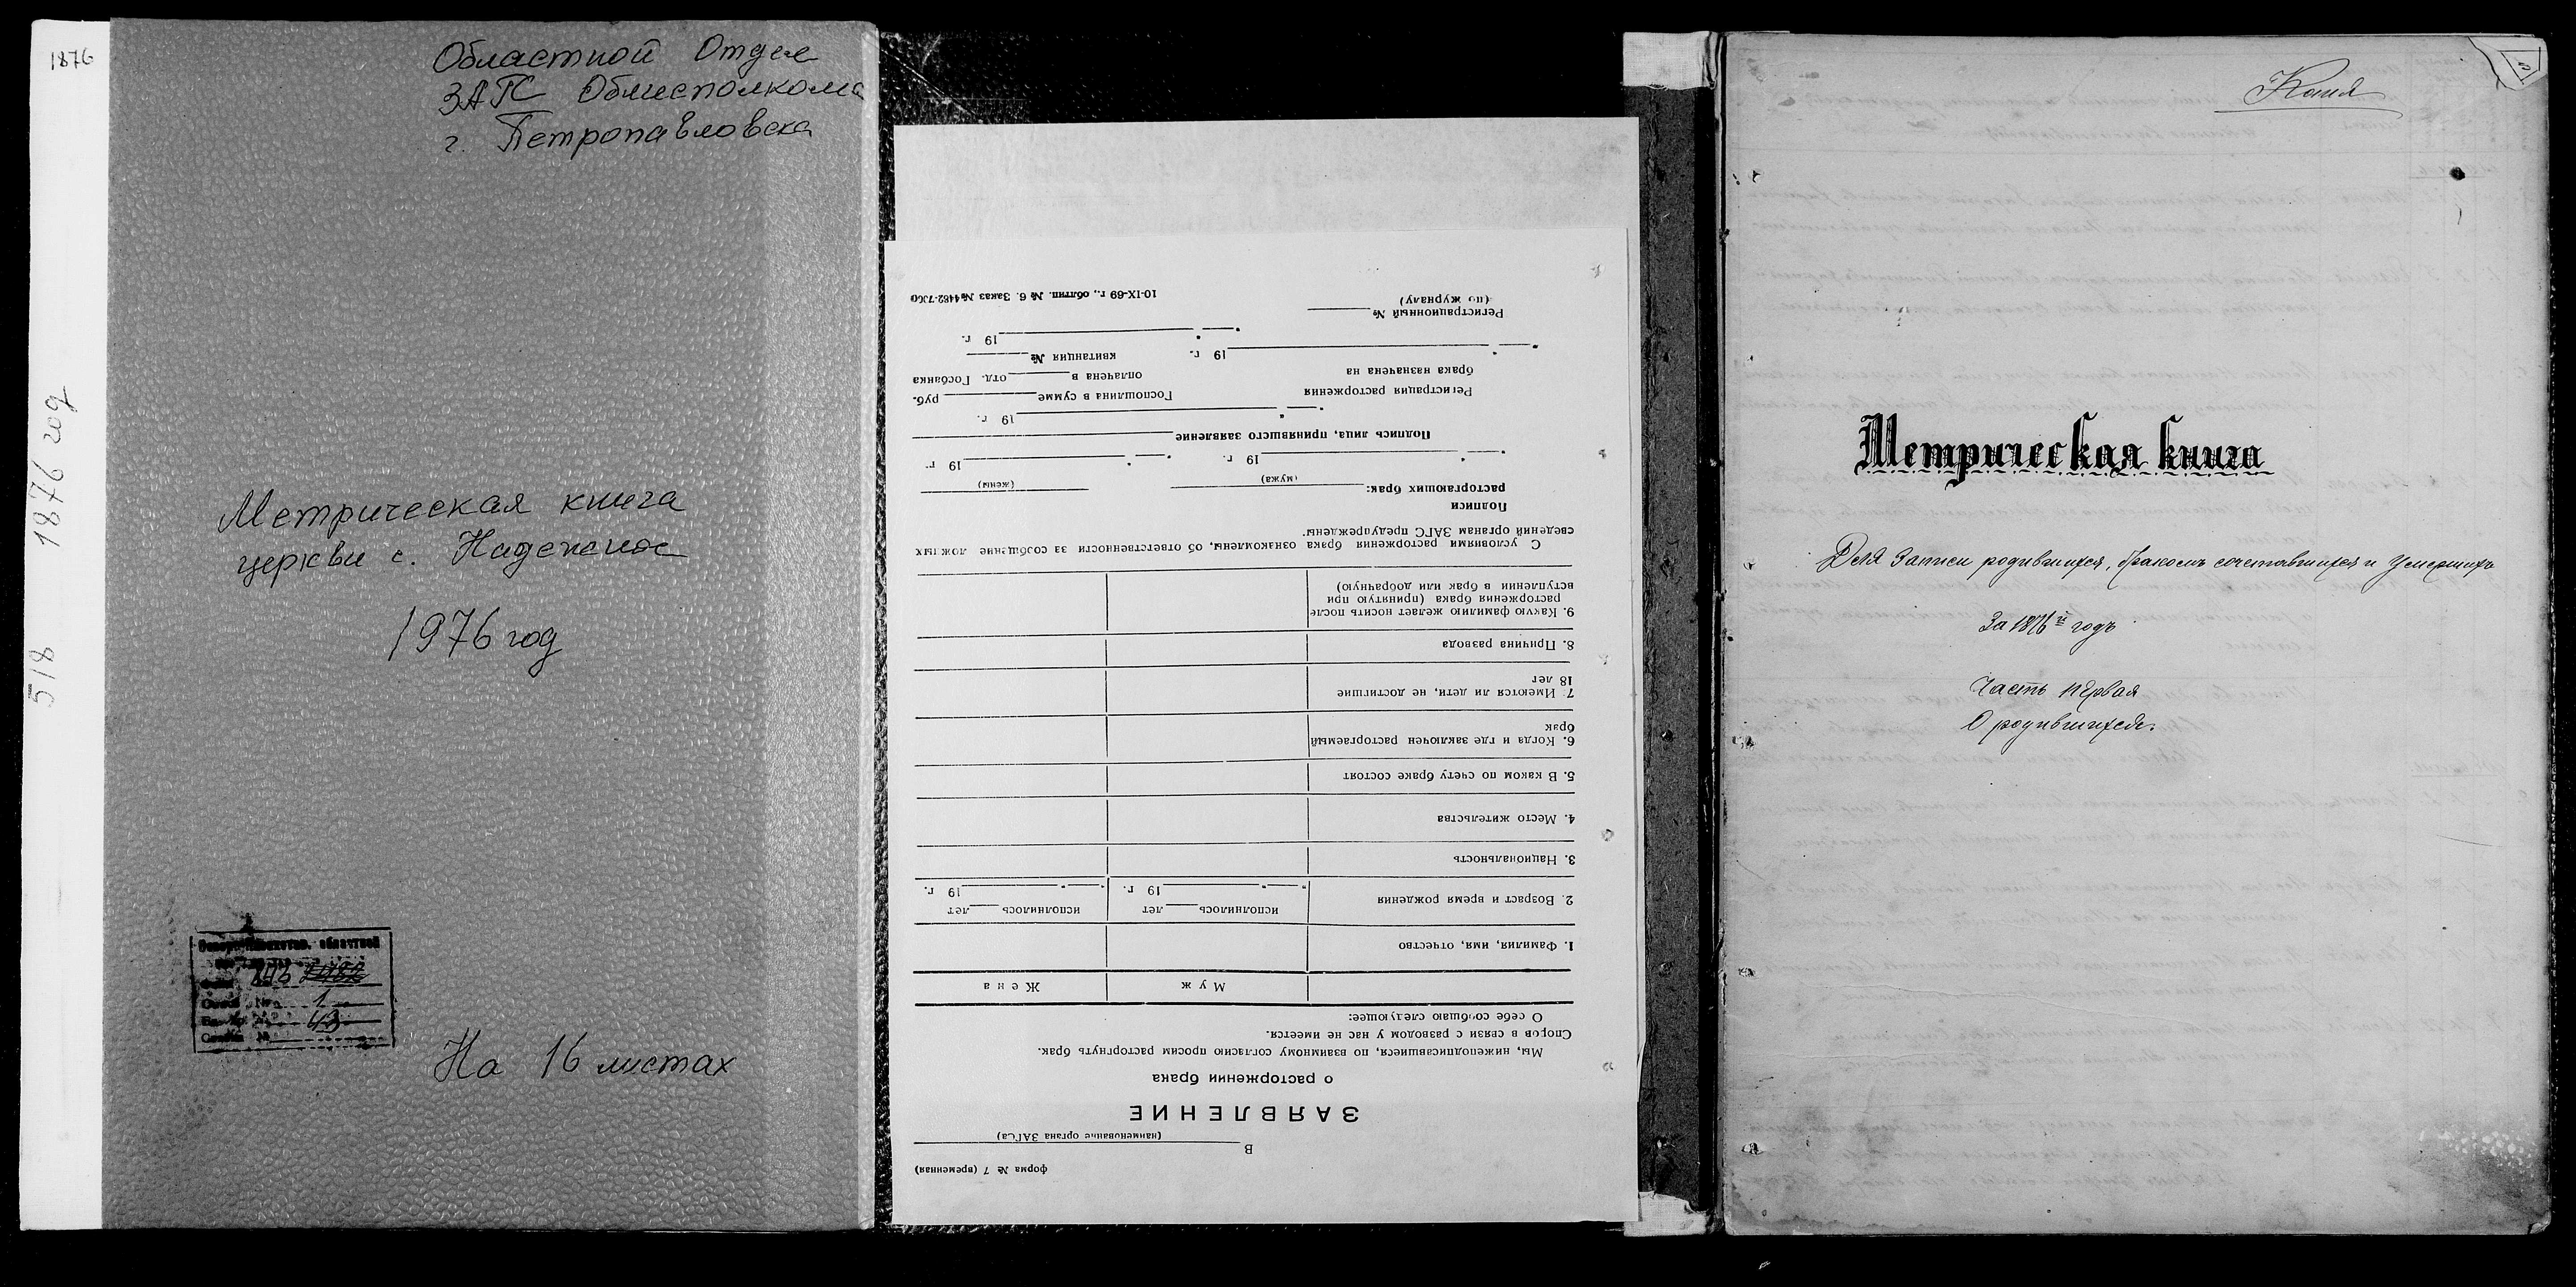 1876
518 1876 год
Областной Отдел
ЗАГС Облисполкома
г. Петропавловска
Метрическая книга
церкви с. Надежное
1976 год
областной
846 2482
Опись № 1
43
На 16 листах
форма № 7 (временная)
В
(наименование органа ЗАГСа)
ЗАЯВЛЕНИЕ
о расторжении брака
Мы, нижеподписавшиеся, по взаимному согласию просим расторгнуть брак.
Споров в связи с разводом у нас не имеется.
О себе сообщаю следующее:
Муж Жена
1. Фамилия, имя, отчество
2. Возраст и время рождения исполнилось лет исполнилось лет
" " 19 г. " " 19 г.
3. Национальность
4. Место жительства
5. В каком по счету браке состоят
6. Когда и где заключен расторгаемый
брак
7. Имеются ли дети, не достигшие
18 лет
8. Причина развода
9. Какую фамилию желает носить после
расторжения брака (принятую при
вступлении в брак или добрачную)
С условиями расторжения брака ознакомлены, об ответственности за сообщение ложных
сведений органам ЗАГС предупреждены.
Подписи
расторгающих брак:
(мужа) (жены)
" " 19 г. " " 19 г.
Подпись лица, принявшего заявление
" " 19 г.
Регистрация расторжения Госпошлина в сумме руб.
брака назначена на оплачена в отд. Госбанка
квитанция №
" " 19 г. " " 19 г.
Регистрационный №
(по журналу)
10-IX-69 г., облтип. № 6. Заказ № 4482-7000
Копія
Метрическая книга
Для Записи родившихся, бракомъ сочетавшихся и Умершихъ
За 1876й годъ
Часть пЕрвая
О родившихся.